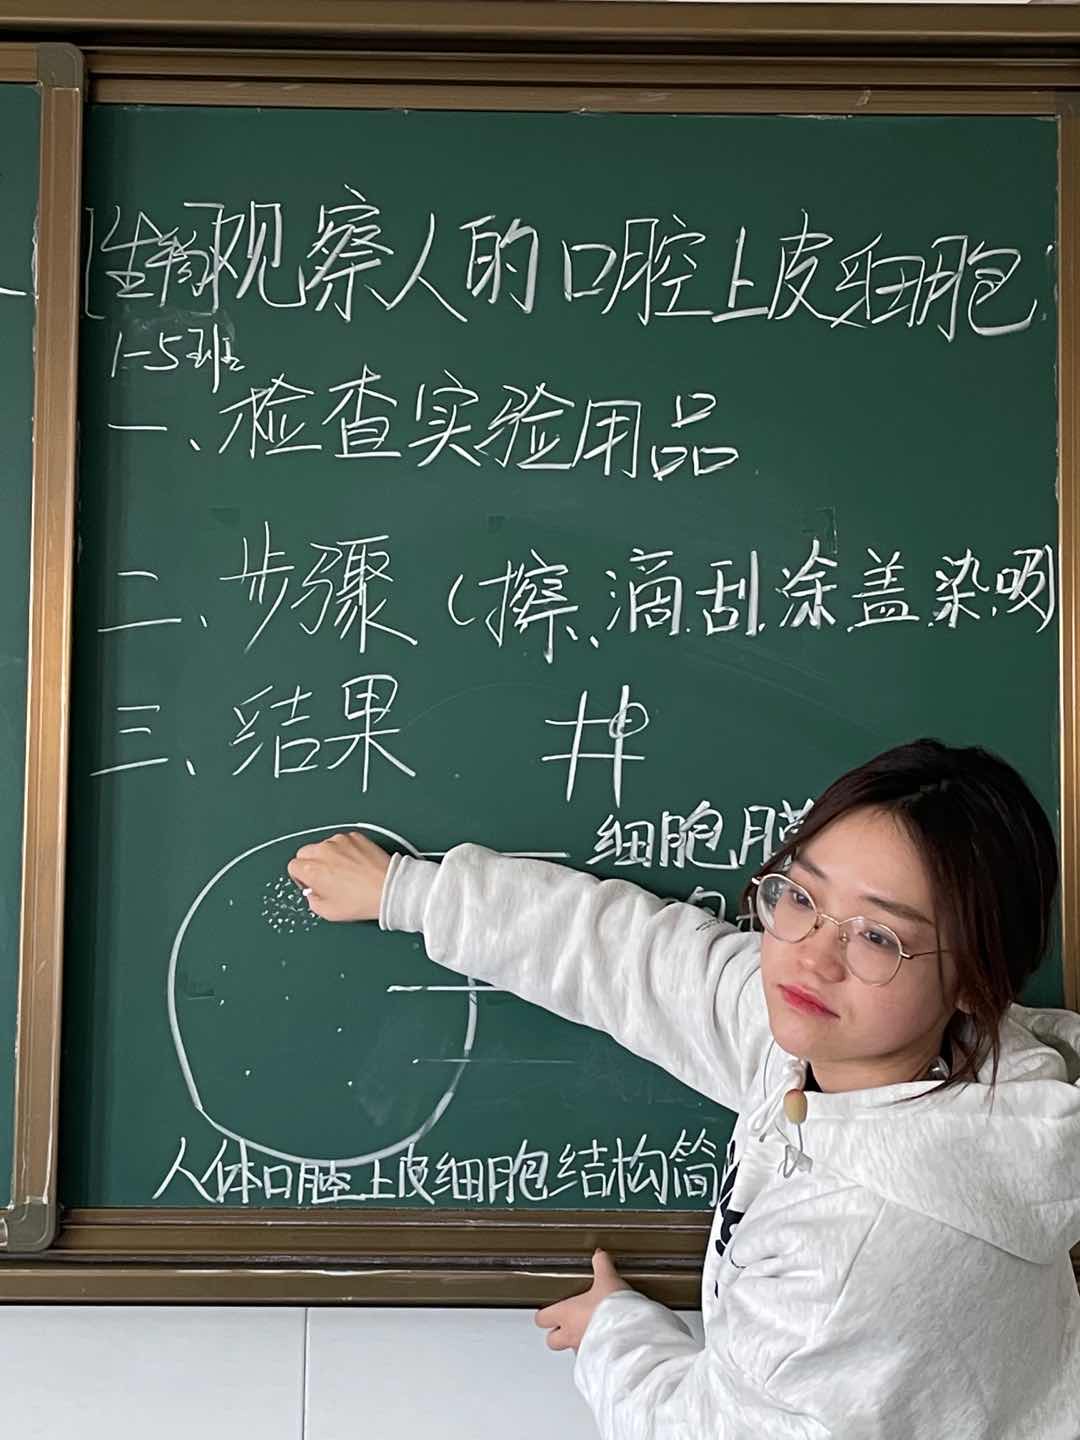 [生物]观察人的口腔上皮细胞
1-5班
一、检查实验用品
二、步骤(擦、滴.刮.涂.盖.染.吸)
三、结果
细胞膜
人体口腔上皮细胞结构简